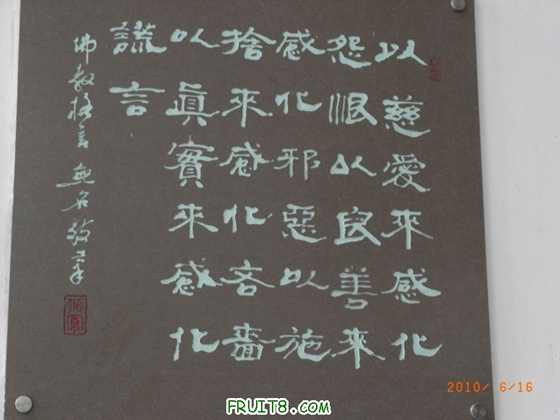 以慈愛來感化
怨恨以良善來
感化邪惡以施
捨來感化吝嗇
以眞實來感化
謊言
佛教格言 無名
2010/ 6/16
FRUIT8.COM